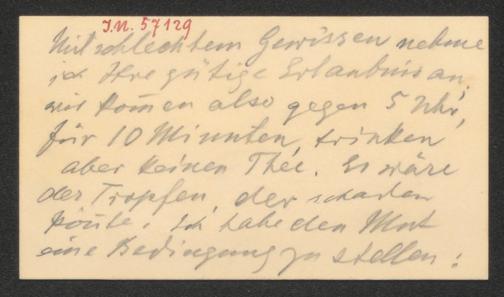 J.N. 57129
Mit schlechtem Gewissen nehme
ich Ihre gütige Erlaubnis an.
wir kom̄en also gegen 5 Uhr,
für 10 Minuten, trinken
aber keinen Thee. Es wäre
der Tropfen, der schaden
kön̄te. Ich habe den Mut
eine Bedingung zu stellen: